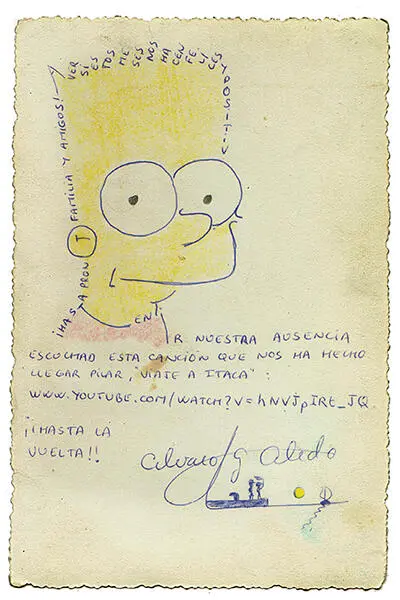 ¡HASTA PRONTO FAMILIA Y AMIGOS!
VER SI ESTOS MESES NOS HACEN FELICES
ENT
IR NUESTRA AUSENCIA
ESCUCHAD ESTA CANCIÓN QUE NOS HA HECHO
LLEGAR PILAR, "VIATE A ITACA":
WWW.YOUTUBE.COM/WATCH?V=hNVJpIRt_JQ
¡¡HASTA LA
VUELTA!!
Alvaro G Aledo